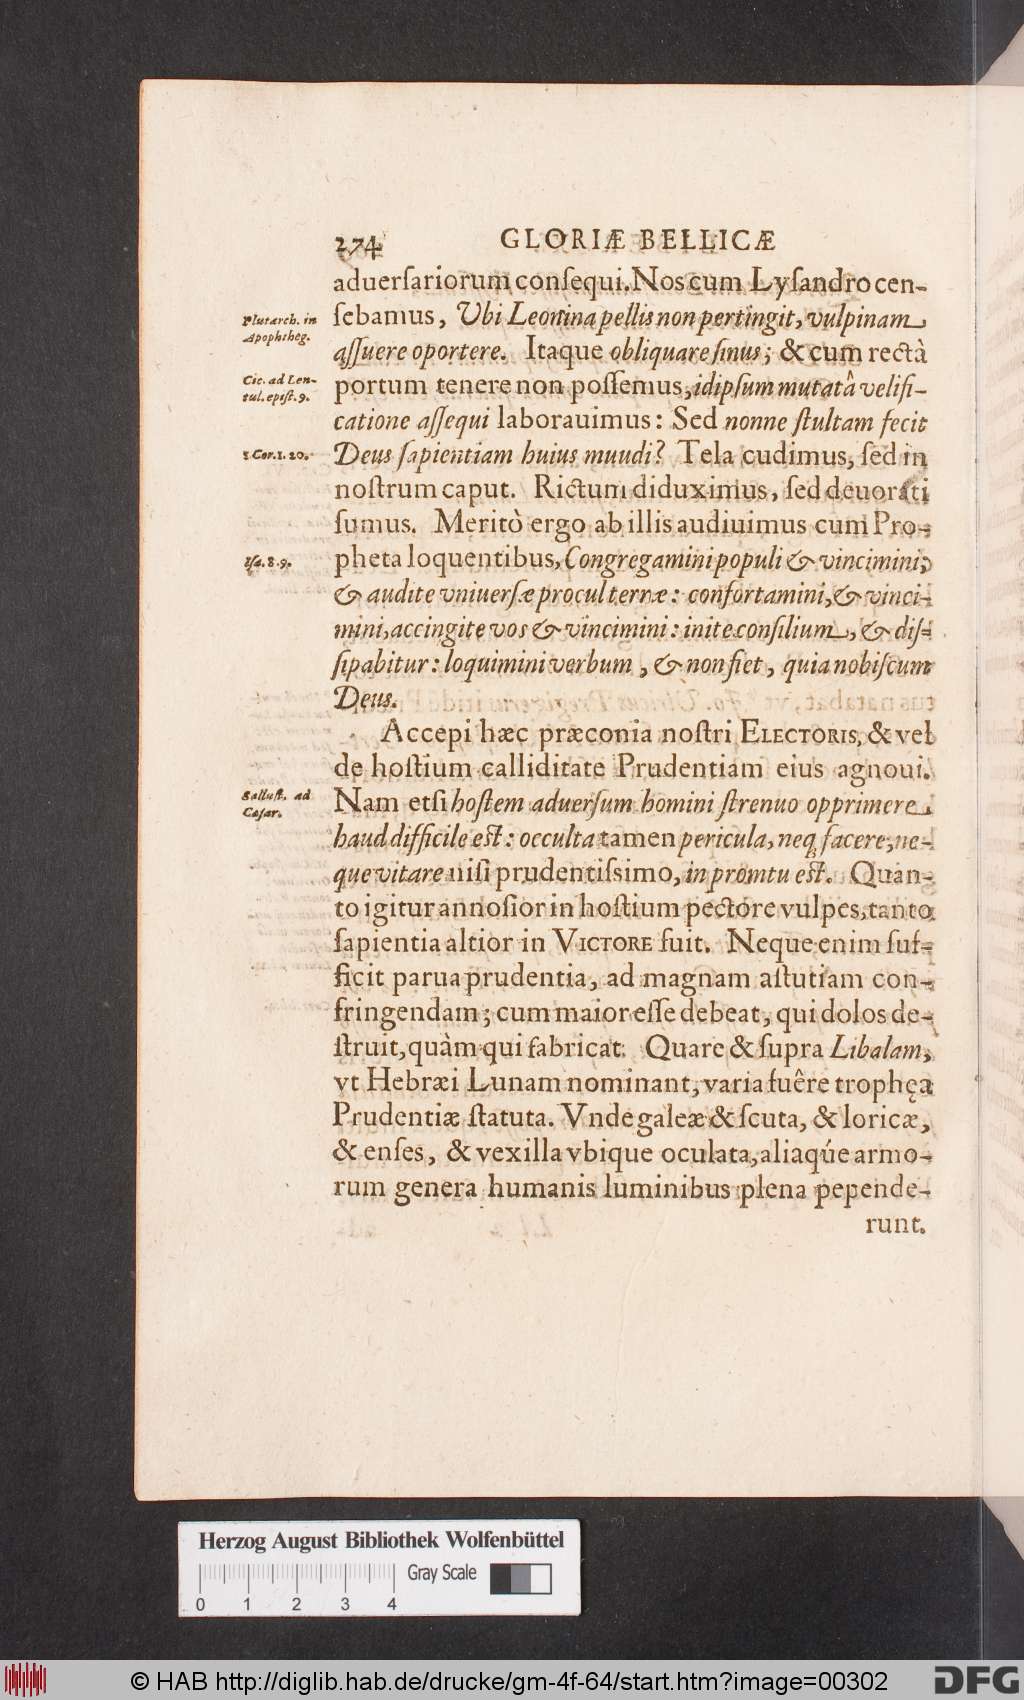 274 GLORIÆ BELLICÆ
aduerſariorum conſequi. Nos cum Lyſandro cen-
Plutarch. in
Apophtheg.
ſebamus, Ubi Leonina pellis non pertingit, vulpinam
aſſuere oportere. Itaque obliquare ſinus; & cum rectà
Cic. ad Len-
tul. epiſt. 9.
portum tenere non poſſemus, idipſum mutatâ veliſi-
catione aſſequi laborauimus: Sed nonne ſtultam fecit
1 Cor. 1. 20.
Deus ſapientiam huius muudi? Tela cudimus, ſed in
noſtrum caput. Rictum diduximus, ſed deuorati
ſumus. Meritò ergo ab illis audiuimus cum Pro-
Iſa. 8. 9.
pheta loquentibus, Congregamini populi & vincimini,
& audite vniuerſæ procul terræ: confortamini, & vinci-
mini, accingite vos & vincimini: inite conſilium, & diſ-
ſipabitur: loquimini verbum, & non fiet, quia nobiſcum
Deus.
Accepi hæc præconia noſtri ELECTORIS, & vel
de hoſtium calliditate Prudentiam eius agnoui.
Salluſt. ad
Cæſar.
Nam etſi hoſtem aduerſum homini ſtrenuo opprimere
haud difficile eſt: occulta tamen pericula, neq; facere, ne-
que vitare niſi prudentiſsimo, in promtu eſt. Quan-
to igitur annoſior in hoſtium pectore vulpes, tanto
ſapientia altior in VICTORE fuit. Neque enim ſuf-
ficit parua prudentia, ad magnam aſtutiam con-
fringendam; cum maior eſſe debeat, qui dolos de-
ſtruit, quàm qui fabricat. Quare & ſupra Libalam,
vt Hebræi Lunam nominant, varia fuêre trophęa
Prudentiæ ſtatuta. Vnde galeæ & ſcuta, & loricæ,
& enſes, & vexilla vbique oculata, aliaqúe armo-
rum genera humanis luminibus plena pepende-
runt.
Herzog August Bibliothek Wolfenbüttel
Gray Scale
0 1 2 3 4
© HAB http://diglib.hab.de/drucke/gm-4f-64/start.htm?image=00302
DFG